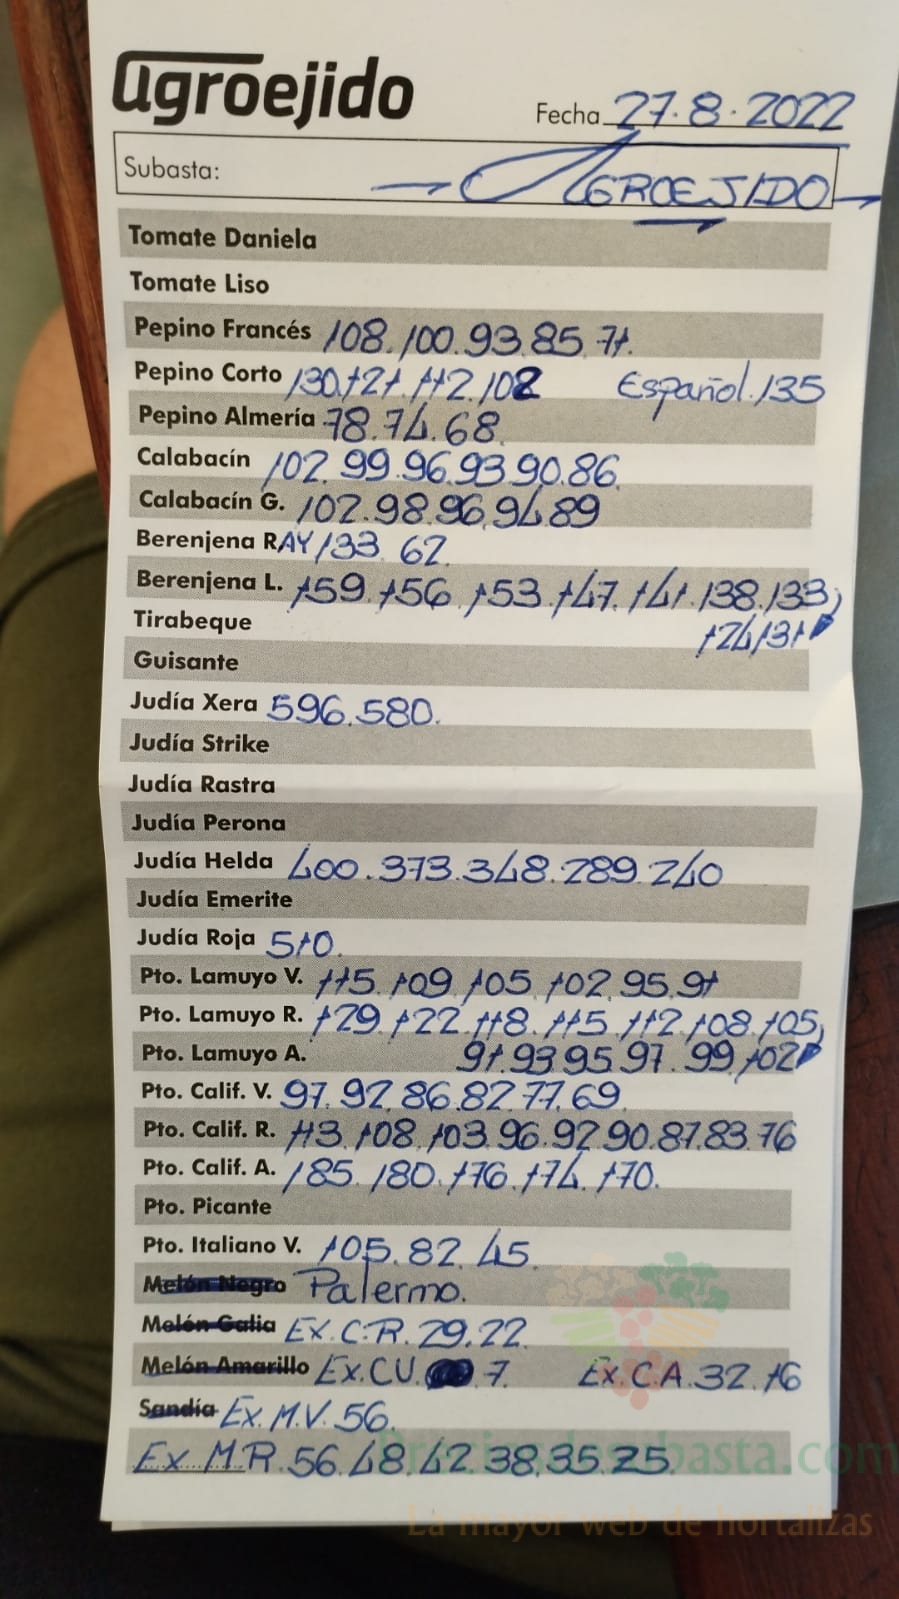 agroejido
Fecha 27.8.2022
Subasta: AGROEJIDO
Tomate Daniela
Tomate Liso
Pepino Francés 108.100.93.85.71.
Pepino Corto 130.121.112.102 Español.135
Pepino Almería 78.74.68.
Calabacín 102.99.96.93.90.86.
Calabacín G. 102.98.96.94.89
Berenjena RAY 133.62.
Berenjena L. 159.156.153.147.141.138.133,
Tirabeque 124.131
Guisante
Judía Xera 596.580.
Judía Strike
Judía Rastra
Judía Perona
Judía Helda 400.373.348.289.240
Judía Emerite
Judía Roja 510.
Pto. Lamuyo V. 115.109.105.102.95.91
Pto. Lamuyo R. 129.122.118.115.112.108.105,
Pto. Lamuyo A. 91.93.95.97.99.102
Pto. Calif. V. 97.92.86.82.77.69.
Pto. Calif. R. 113.108.103.96.92.90.87.83.76
Pto. Calif. A. 185.180.176.174.170.
Pto. Picante
Pto. Italiano V. 105.82.45.
Melón Negro Palermo.
Melón Galia Ex.C.R.29.22.
Melón Amarillo Ex.CU. 7. Ex.C.A.32.16
Sandía Ex.M.V.56.
Ex M.R.56.48.42.38.35.25.
Preciosdesubasta.com
La mayor web de hortalizas